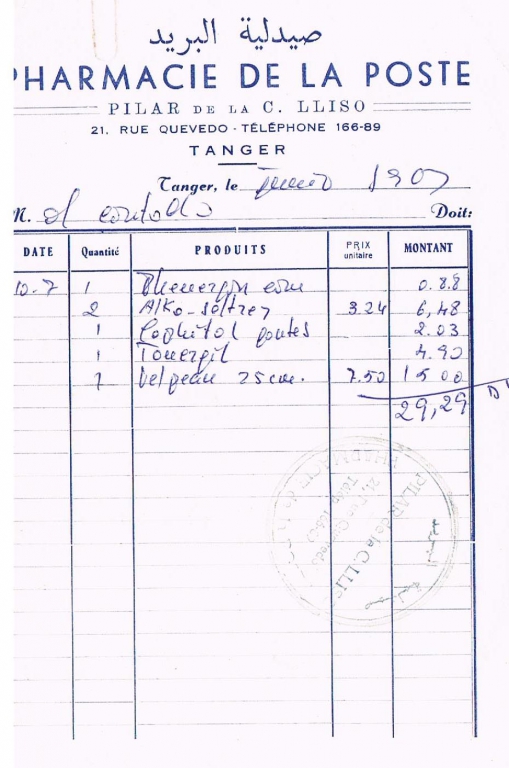 صيدلية البريد
PHARMACIE DE LA POSTE
PILAR DE LA C. LLISO
21, RUE QUEVEDO - TÉLÉPHONE 166-89
TANGER
Tanger, le
M. al contado Doit:
DATE Quantité PRODUITS PRIX unitaire MONTANT
10-7 1 0.88
2 Alka-seltzer 3.24 6,48
1 2.03
1 4.90
velpeau 25 cm. 7.50 15 00
29,29
PILAR de la C. LLIS